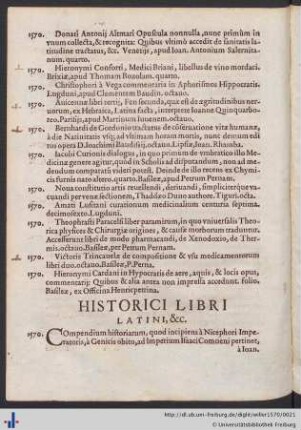 1570. Donati Antonij Altmari Opuscula nonnulla, nunc primùm in
vnum collecta, & recognita: Quibus vltimò accedit de sanitatis la-
titudine tractatus, &c. Venetijs, apud Ioan. Antonium Salernita-
num. quarto.
1570. Hieronymi Conforti, Medici Briani, libellus de vino mordaci.
Brixiæ, apud Thomam Bozulam. quarto.
1570. Christophori à Vega commentaria in Aphorismos Hippocratis.
Lugduni, apud Clementem Baudin. octauo.
1570. Auicennæ libri tertij, Fen secunda, quæ est de ægritudinibus ner-
uorum, ex Hebraica, Latina facta, interprete Ioanne Quinquarbo-
reo. Parisijs, apud Martinum Iuuenem. octauo.
1570. Bernhardi de Gordonio tractatus de conseruatione vitæ humanæ,
à die Natiuitatis vsq; ad vltimam horam mortis, nunc demum edi-
tus opera D. Ioachimi Baudisij. octauo. Lipsiæ, Ioan. Rhamba.
1570. Iacobi Curionis dialogus, in quo primùm de vmbratico illo Me-
dicinæ genere agitur, quod in Scholis ad disputandum, non ad me-
dendum comparatum videri potest. Deinde de illo recens ex Chymi-
cis furnis nato altero. quarto. Basileæ, apud Petrum Pernam.
1570. Noua constitutio artis reuellendi, deriuandi, simpliciterque va-
cuandi per venæ sectionem, Thaddæo Duno authore. Tiguri. octa.
1570. Amati Lusitani curationum medicinalium centuria septima.
decimosexto. Lugduni.
1570. Theophrasti Paracelsi liber paramirum, in quo vniuersalis Theo-
rica physicæ & Chirurgiæ origines, & causæ morborum traduntur.
Accesserunt libri de modo pharmacandi, de Xenodoxio, de Ther-
mis. octauo. Basileæ, per Petrum Pernam.
1570. Victoris Trincauelæ de compositione & vsu medicamentorum
libri duo. octauo. Basileæ, P. Perna.
1570. Hieronymi Cardani in Hypocratis de aere, aquis, & locis opus,
commentarij: Quibus & alia antea non impressa accedunt. folio.
Basileæ, ex Officina Henricpetrina.
HISTORICI LIBRI
LATINI, &c.
1570. Compendium historiarum, quod incipiens à Nicephori Impe-
ratoris, à Genicis obitu, ad Imperium Isaaci Comneni pertinet,
à Ioan.
http://dl.ub.uni-freiburg.de/diglit/willer1570/0021
© Universitätsbibliothek Freiburg